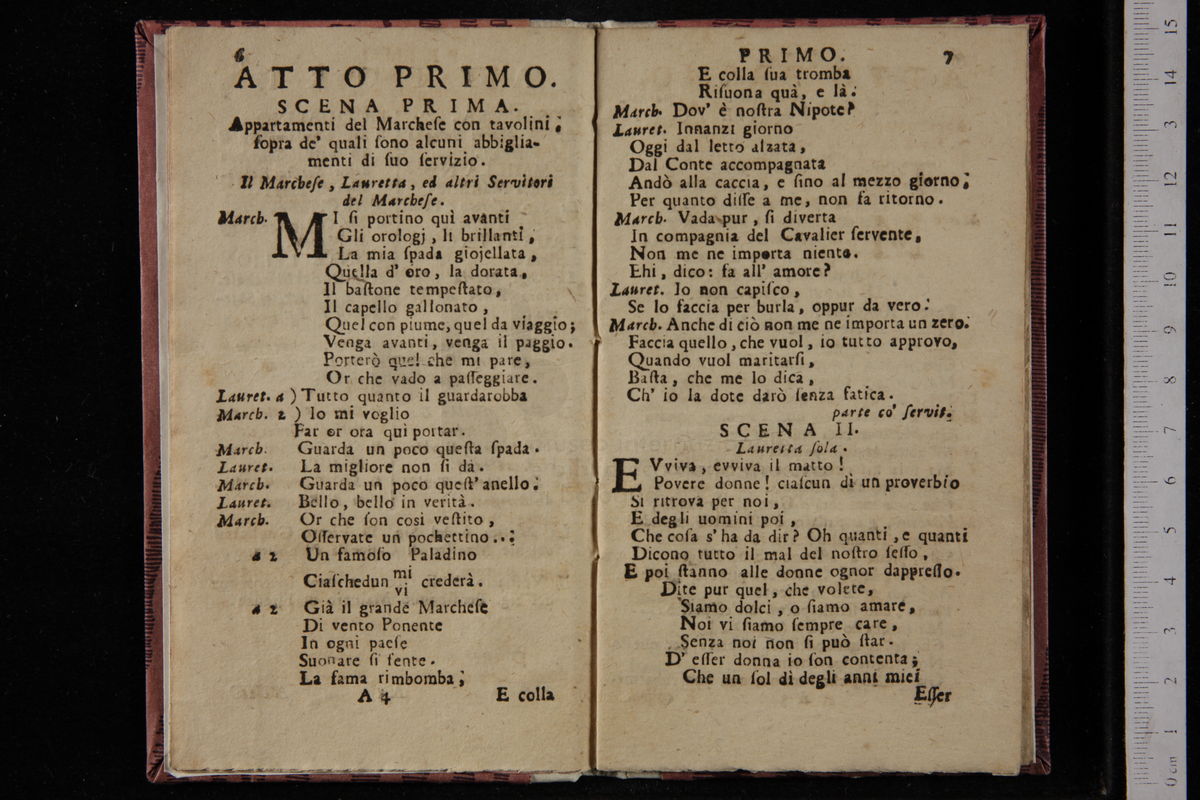 6
ATTO PRIMO.
SCENA PRIMA.
Appartamenti del Marcheſe con tavolini;
ſopra de' quali ſono alcuni abbiglia-
menti di ſuo ſervizio.
Il Marcheſe, Lauretta, ed altri Servitori
del Marcheſe.
March. MI ſi portino quì avanti
Gli orologj, li brillanti,
La mia ſpada giojellata,
Quella d' oro, la dorata,
Il baſtone tempeſtato,
Il capello gallonato,
Quel con piume, quel da viaggio;
Venga avanti, venga il paggio.
Porterò quel che mi pare,
Or che vado a paſſeggiare.
Lauret. a ) Tutto quanto il guardarobba
March. 2 ) Io mi voglio
Far or ora qui portar.
March. Guarda un poco queſta ſpada.
Lauret. La migliore non ſi dà.
March. Guarda un poco queſt' anello.
Lauret. Bello, bello in verità.
March. Or che ſon così veſtito,
Oſſervate un pochettino...
a 2 Un famoſo Paladino
Ciaſchedun mi crederà.
vi
a 2 Già il grande Marcheſe
Di vento Ponente
In ogni paeſe
Suonare ſi ſente.
La fama rimbomba;
A 4 E colla
PRIMO. 7
E colla ſua tromba
Riſuona quà, e là.
March. Dov' è noſtra Nipote?
Lauret. Innanzi giorno
Oggi dal letto alzata,
Dal Conte accompagnata
Andò alla caccia, e ſino al mezzo giorno,
Per quanto diſſe a me, non fa ritorno.
March. Vada pur, ſi diverta
In compagnia del Cavalier ſervente,
Non me ne importa niente.
Ehi, dico: fa all' amore?
Lauret. Io non capiſco,
Se lo faccia per burla, oppur da vero.
March. Anche di ciò non me ne importa un zero.
Faccia quello, che vuol, io tutto approvo,
Quando vuol maritarſi,
Baſta, che me lo dica,
Ch' io la dote darò ſenza fatica.
parte co' ſervit.
SCENA II.
Lauretta ſola.
EVviva, evviva il matto!
Povere donne! ciaſcun dì un proverbio
Si ritrova per noi,
E degli uomini poi,
Che coſa s' ha da dir? Oh quanti, e quanti
Dicono tutto il mal del noſtro ſeſſo,
E poi ſtanno alle donne ognor dappreſſo.
Dite pur quel, che volete,
Siamo dolci, o ſiamo amare,
Noi vi ſiamo ſempre care,
Senza noi non ſi può ſtar.
D' eſſer donna io ſon contenta;
Che un ſol dì degli anni miei
Eſſer